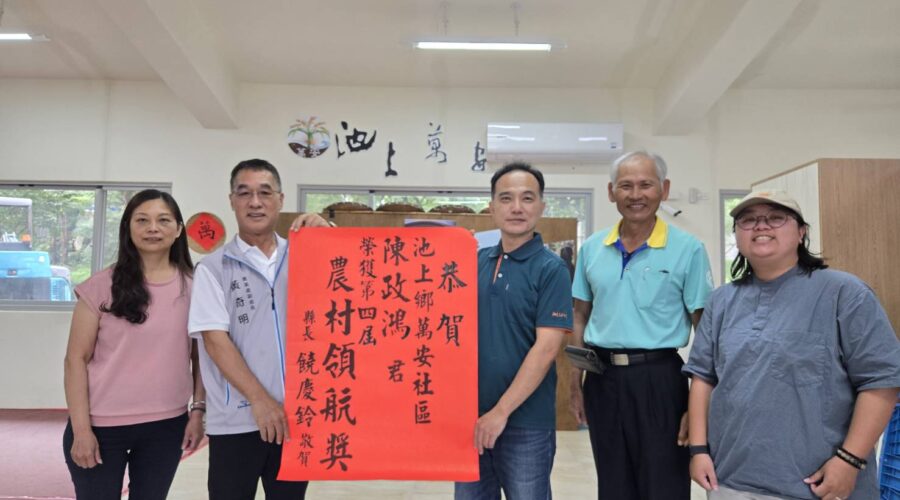 池上萬安
萬
恭賀
池上鄉萬安社區
陳政鴻君
榮獲第四屆
農村領航獎
縣長 饒慶鈴敬賀
黃奇明